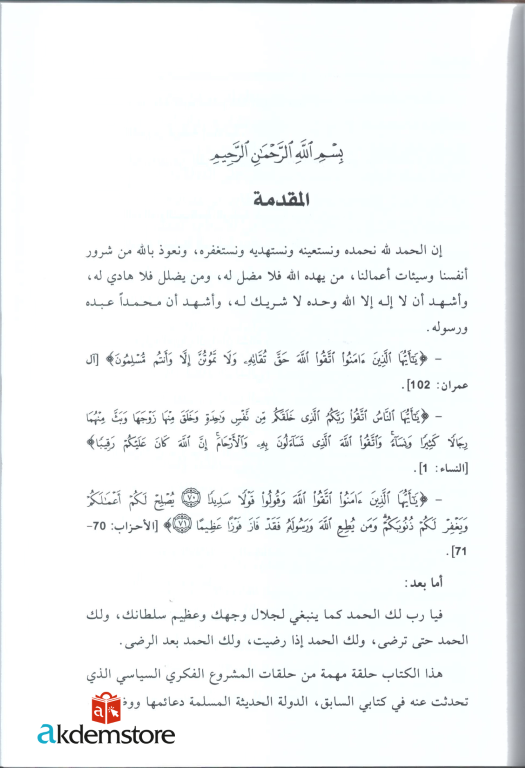 بِسْمِ اللَّهِ الرَّحْمَٰنِ الرَّحِيمِ
المقدمة
إن الحمد لله نحمده ونستعينه ونستهديه ونستغفره، ونعوذ بالله من شرور
أنفسنا وسيئات أعمالنا، من يهده الله فلا مضل له، ومن يضلل فلا هادي له،
وأشهد أن لا إله إلا الله وحده لا شريك له، وأشهد أن محمداً عبده
ورسوله.
– ﴿يَٰٓأَيُّهَا ٱلَّذِينَ ءَامَنُوا۟ ٱتَّقُوا۟ ٱللَّهَ حَقَّ تُقَاتِهِۦ وَلَا تَمُوتُنَّ إِلَّا وَأَنتُم مُّسْلِمُونَ﴾ [آل
عمران: 102].
– ﴿يَٰٓأَيُّهَا ٱلنَّاسُ ٱتَّقُوا۟ رَبَّكُمُ ٱلَّذِى خَلَقَكُم مِّن نَّفْسٍ وَٰحِدَةٍ وَخَلَقَ مِنْهَا زَوْجَهَا وَبَثَّ مِنْهُمَا
رِجَالًا كَثِيرًا وَنِسَآءً ۚ وَٱتَّقُوا۟ ٱللَّهَ ٱلَّذِى تَسَآءَلُونَ بِهِۦ وَٱلْأَرْحَامَ ۚ إِنَّ ٱللَّهَ كَانَ عَلَيْكُمْ رَقِيبًا﴾
[النساء: 1].
– ﴿يَٰٓأَيُّهَا ٱلَّذِينَ ءَامَنُوا۟ ٱتَّقُوا۟ ٱللَّهَ وَقُولُوا۟ قَوْلًا سَدِيدًا ٧٠ يُصْلِحْ لَكُمْ أَعْمَٰلَكُمْ
وَيَغْفِرْ لَكُمْ ذُنُوبَكُمْ ۗ وَمَن يُطِعِ ٱللَّهَ وَرَسُولَهُۥ فَقَدْ فَازَ فَوْزًا عَظِيمًا ٧١﴾ [الأحزاب: 70–
71].
أما بعد:
فيا رب لك الحمد كما ينبغي لجلال وجهك وعظيم سلطانك، ولك
الحمد حتى ترضى، ولك الحمد إذا رضيت، ولك الحمد بعد الرضى.
هذا الكتاب حلقة مهمة من حلقات المشروع الفكري السياسي الذي
تحدثت عنه في كتابي السابق، الدولة الحديثة المسلمة دعائمها
akdemstore